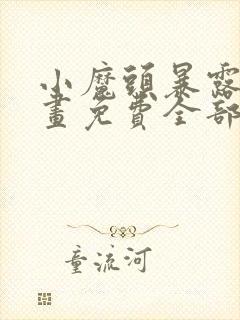 小魔頭暴露
畫免費全部
童流河